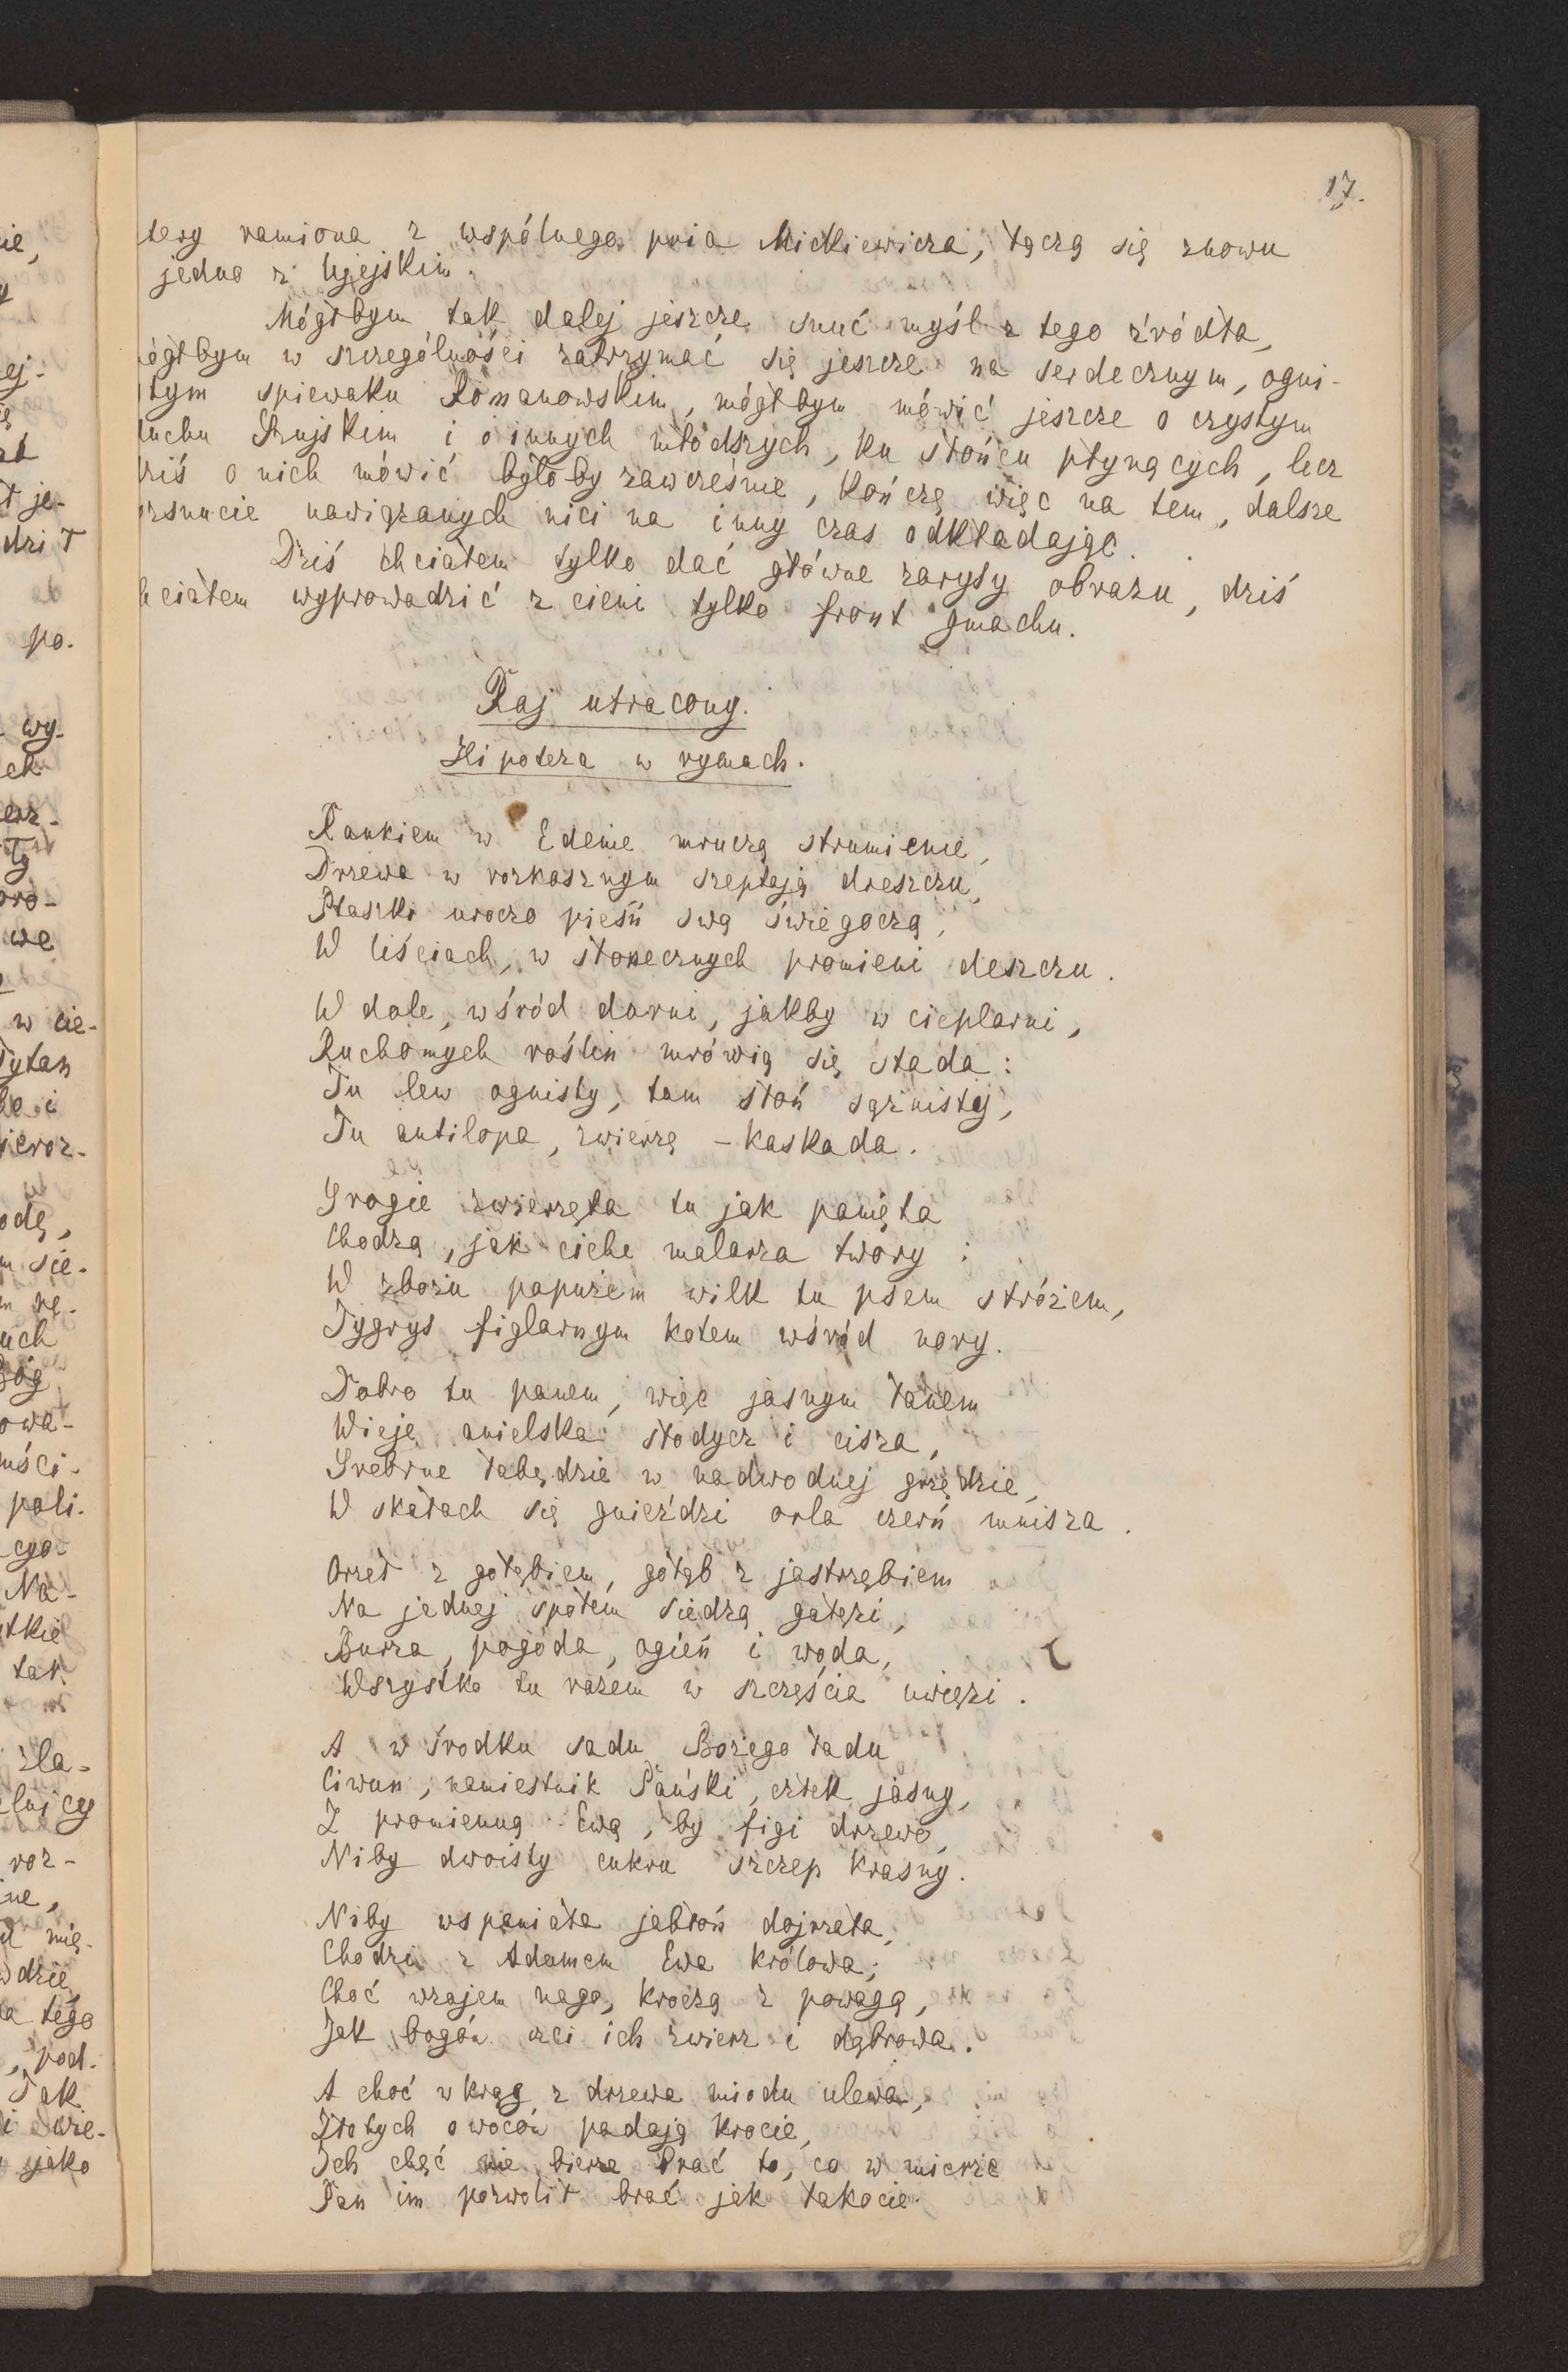 17.
tery ramiona z wspólnego pnia Mickiewicza, łączą się znowu
jedno z Ujejskim.
Mógłbym tak dalej jeszcze snuć myśl z tego źródła,
ógłbym w szczególności zatrzymać się jeszcze na serdecznym, ogni-
tym spiewaku Romanowskim, mógłbym mówić jeszcze o czystym
uchu Szujskim i o innych młodszych, ku słońcu płynących, lecz
ziś o nich mówić byłoby zawcześnie, kończę więc na tem, dalsze
zsnucie nawiązanych nici na inny czas odkładając.
Dziś chciałem tylko dać główne zarysy obrazu, dziś
hciałem wyprowadzić z cieni tylko front gmachu.
Raj utracony.
Hipoteza w rymach.
Rankiem w Edenie mruczą strumienie,
Drzewa w rozkosznym szeptają dreszczu,
Ptaszki uroczo pieśń swą świegoczą,
W liściach, w słonecznych promieni deszczu.
W dole, wśród darni, jakby w cieplarni,
Ruchomych roślin mrówią się stada:
Tu lew ognisty, tam słoń sążnisty,
Tu antilopa, zwierzę - kaskada.
Srogie zwierzęta tu jak panięta
Chodzą, jak ciche malarza twory:
W zbożu papużem wilk tu psem stróżem,
Tygrys figlarnym kotem wśród nory.
Dobro tu panem, więc jasnym łanem
Wieje anielska słodycz i cisza,
Srebrne łabędzie w nadwodnej grzędzie,
W skałach się gnieździ orla czerń mnisza.
Orzeł z gołębiem, gołąb z jastrzębiem
Na jednej społem siedzą gałęzi,
Burza, pogoda, ogień i woda,
Wszystko tu razem w szczęścia uwięzi.
A w środku sadu Bożego ładu
Ciwun, namiestnik Pański, człek jasny,
Z promienną Ewą, by figi drzewo,
Niby dwoisty cukru szczep krasny.
Niby wspaniała jabłoń dojrzała,
Chodzi z Adamem Ewa królowa;
Choć wzajem nago, kroczą z powagą,
Jak bogów czci ich zwierz i dąbrowa.
A choć wkrąg z drzewa miodu ulewa,
Złotych owoców padają krocie,
Ich chęć nie bierze brać to, co w mierze
Pan im pozwolił brać jak łakocie.